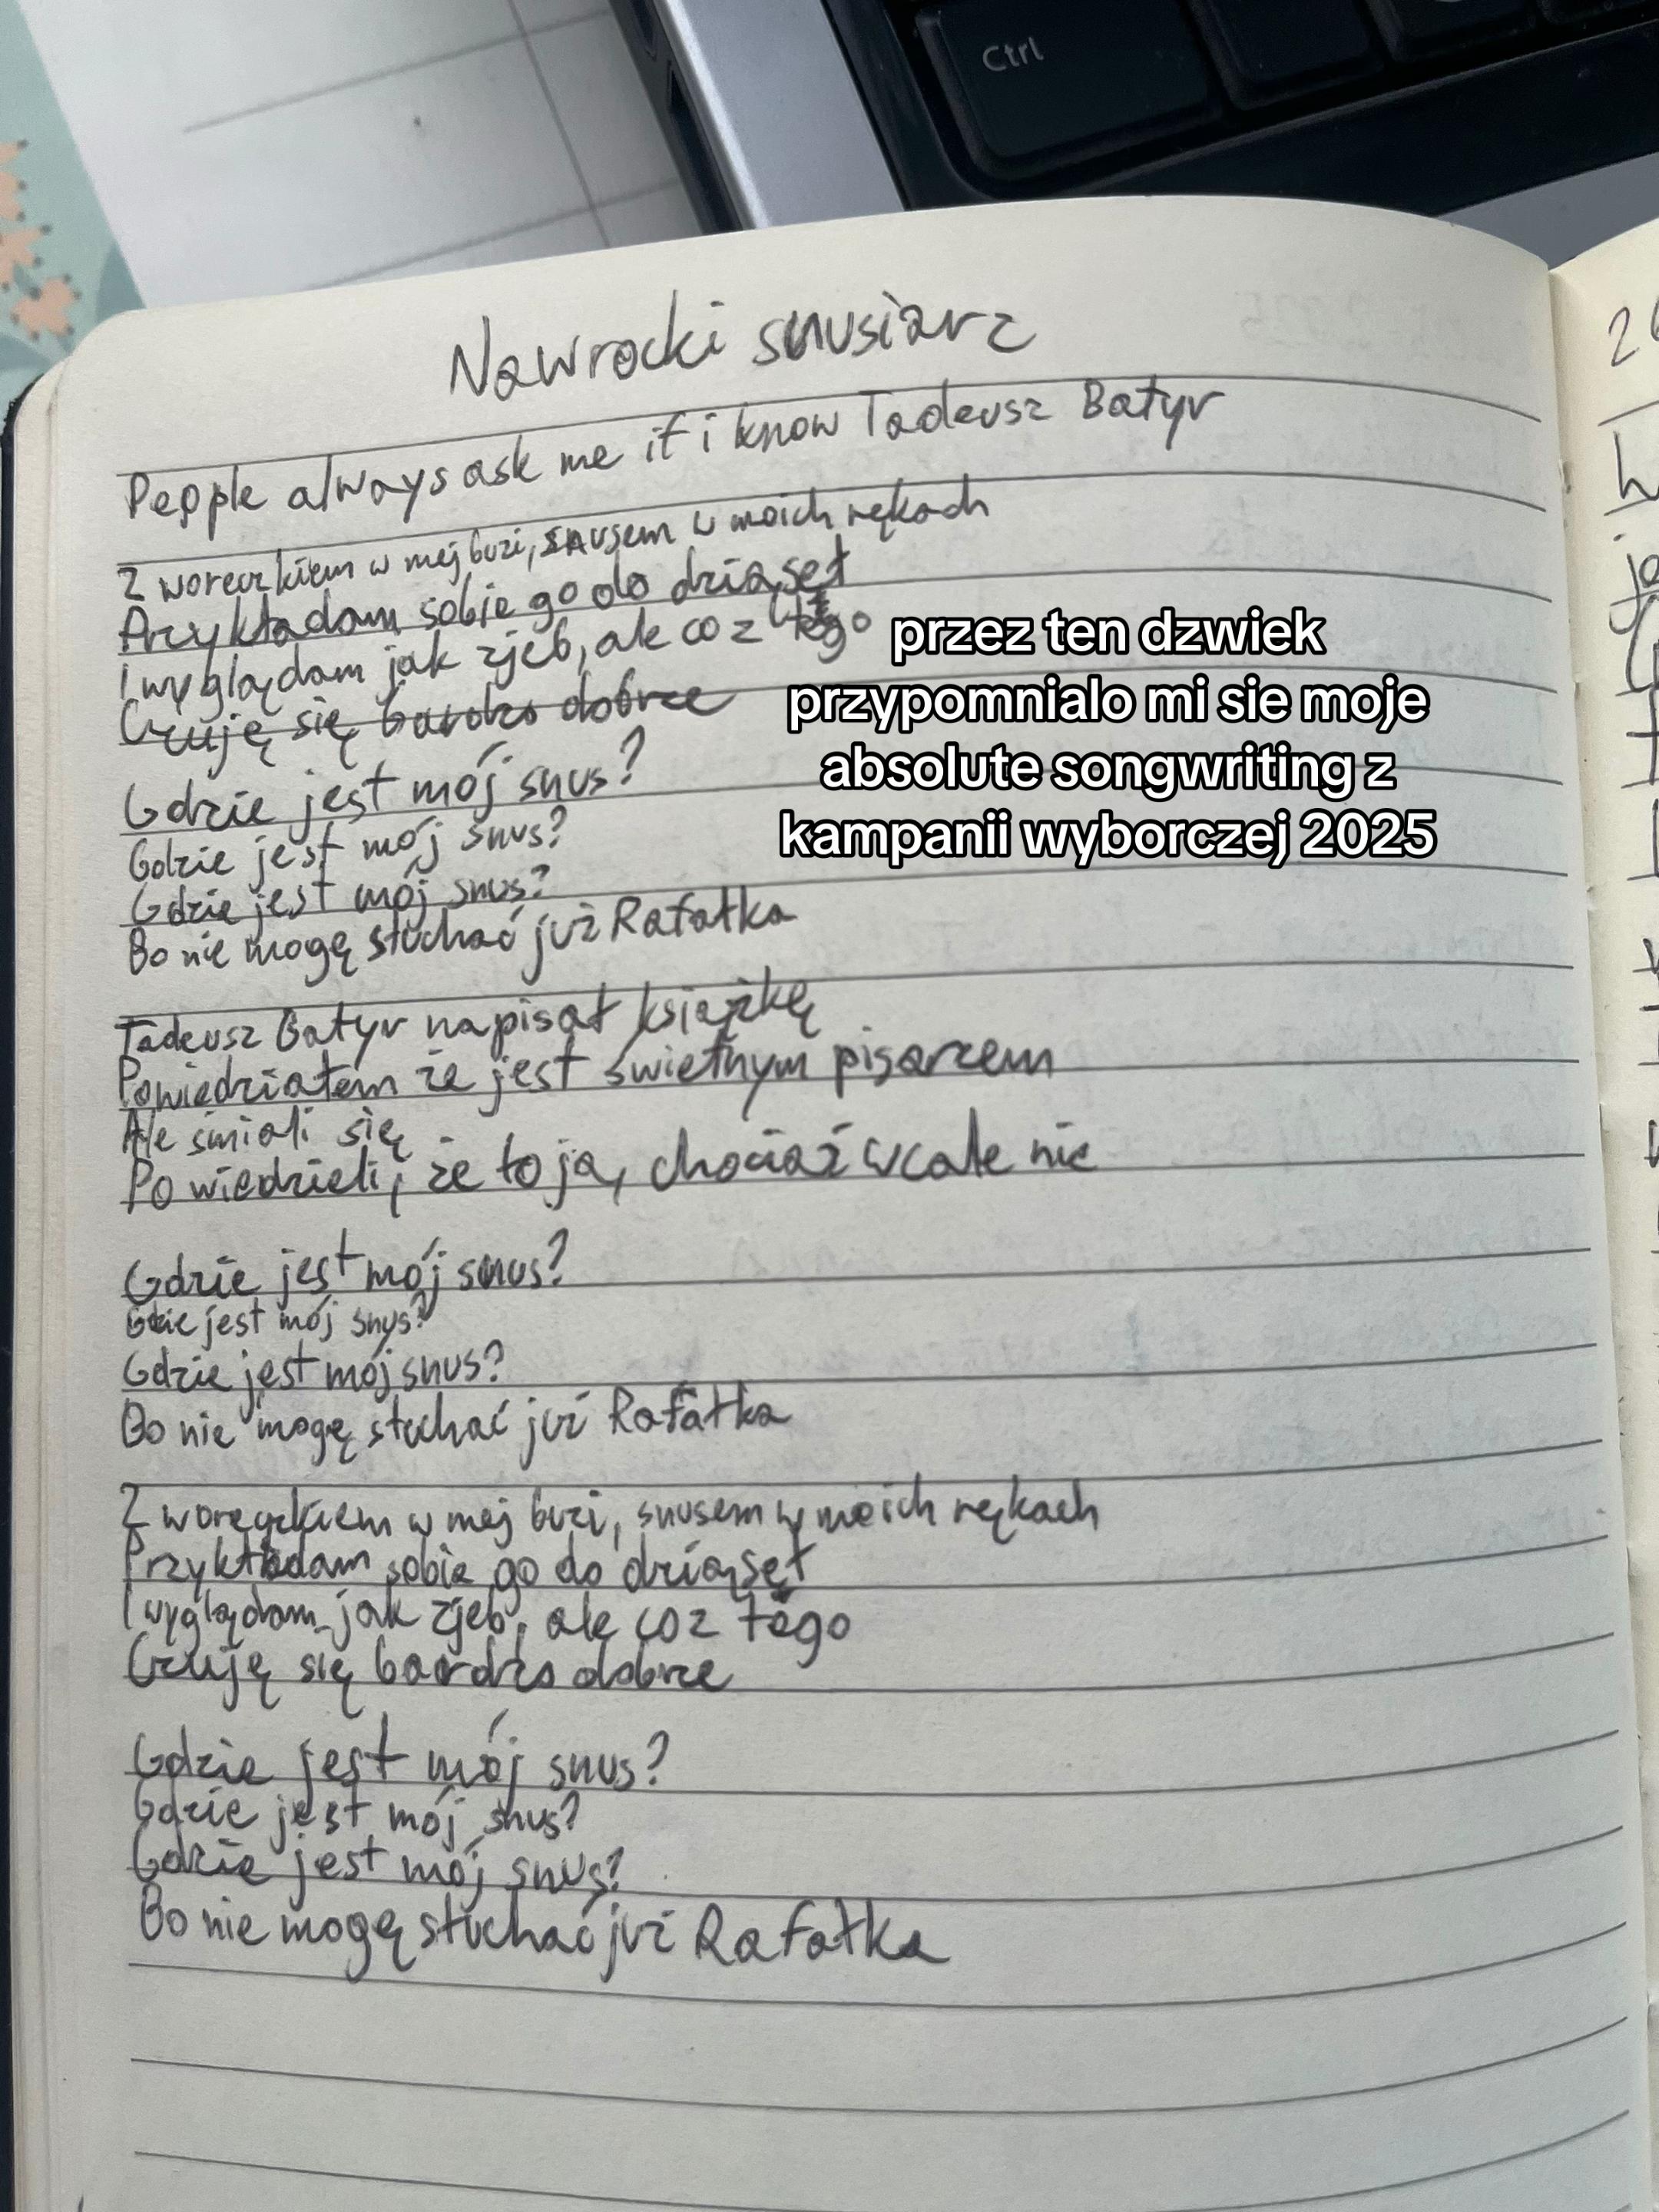 Ctrl
Nawrocki snusiarz
People always ask me if i know Tadeusz Batyr
Z woreczkiem w mej buzi, snusem w moich rękach
Przykładam sobie go do dziąseł
I wyglądam jak zjeb, ale co z tego
Czuję się bardzo dobrze
przez ten dzwiek
przypomnialo mi sie moje
absolute songwriting z
kampanii wyborczej 2025
Gdzie jest mój snus?
Gdzie jest mój snus?
Gdzie jest mój snus?
Bo nie mogę słuchać już Rafałka
Tadeusz Batyr napisał książkę
Powiedziałem że jest świetnym pisarzem
Ale śmiali się
Powiedzieli, że to ja, chociaż wcale nie
Gdzie jest mój snus?
Gdzie jest mój snus?
Gdzie jest mój snus?
Bo nie mogę słuchać już Rafałka
Z woreczkiem w mej buzi, snusem w moich rękach
Przykładam sobie go do dziąseł
I wyglądam jak zjeb, ale co z tego
Czuję się bardzo dobrze
Gdzie jest mój snus?
Gdzie jest mój snus?
Gdzie jest mój snus?
Bo nie mogę słuchać już Rafałka